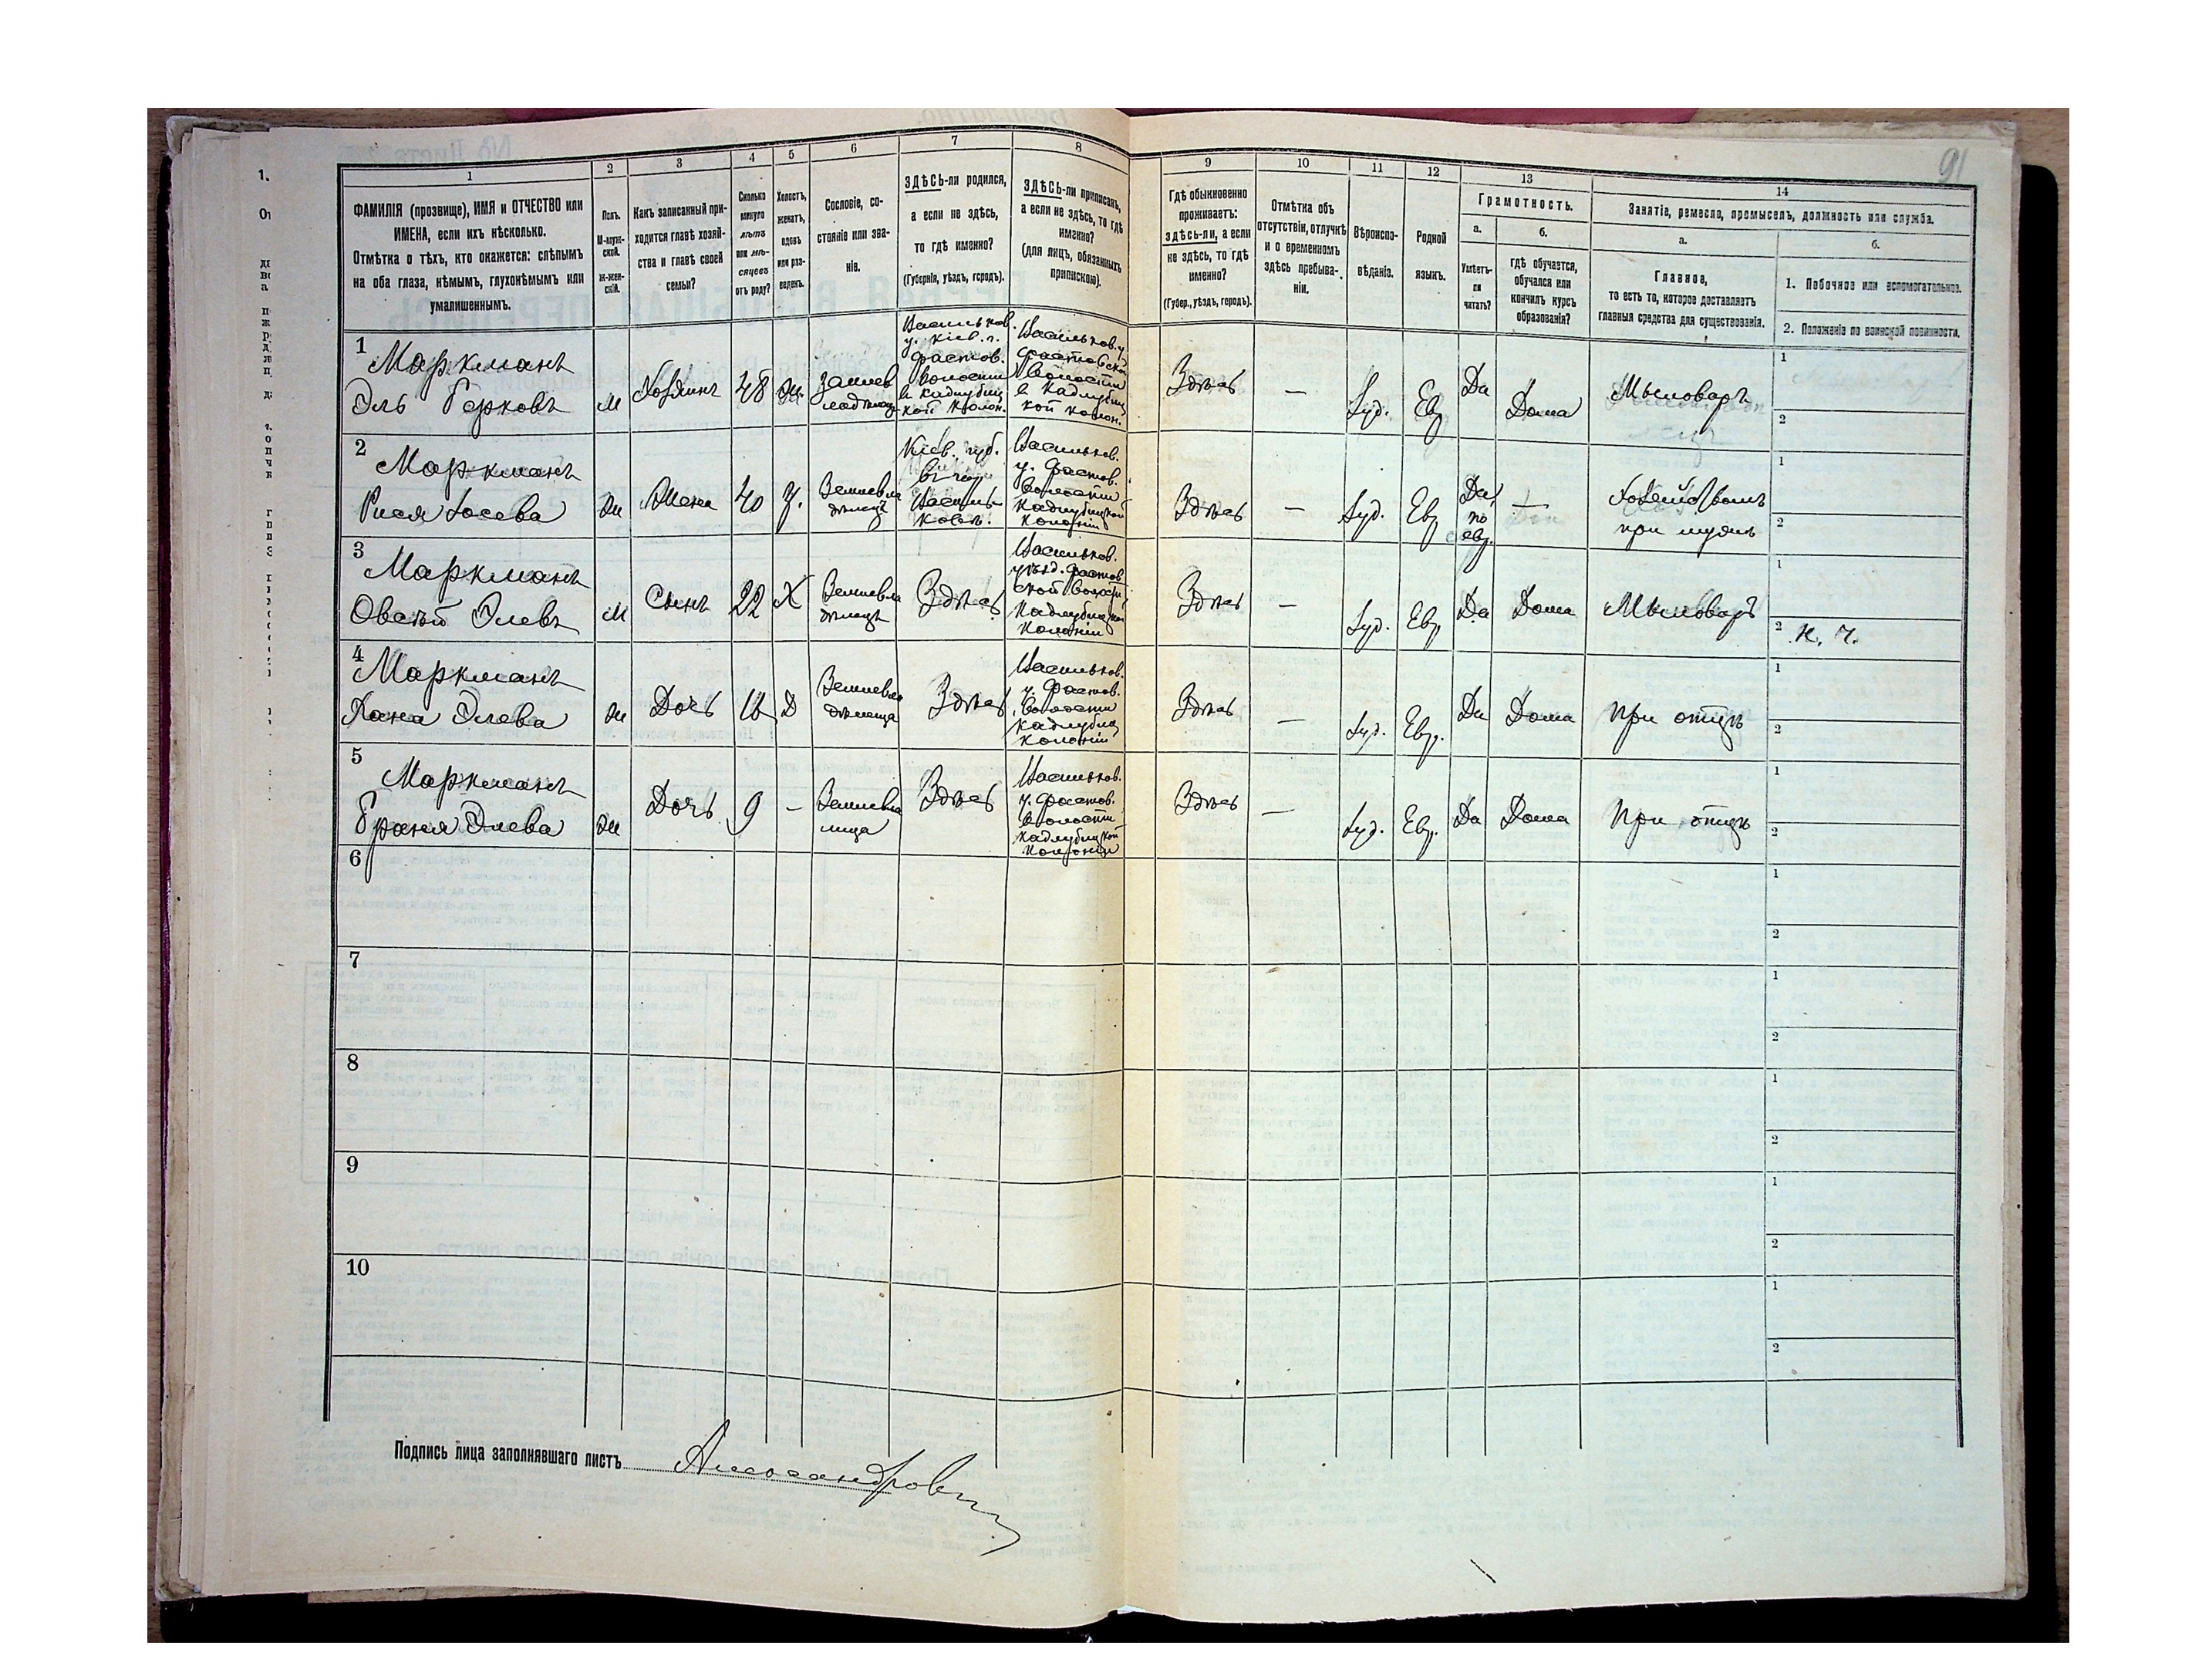 91
1
2
3
4
5
6
7
8
9
10
11
12
13
14
ФАМИЛІЯ (прозвище), ИМЯ и ОТЧЕСТВО или
ИМЕНА, если ихъ нѣсколько.
Отмѣтка о тѣхъ, кто окажется: слѣпымъ
на оба глаза, нѣмымъ, глухонѣмымъ или
умалишеннымъ.
Полъ.
М-муж-
ской.
Ж-жен-
скій.
Какъ записанный при-
ходится главѣ хозяй-
ства и главѣ своей
семьи?
Сколько
минуло
лѣтъ
или мѣ-
сяцевъ
отъ роду?
Холостъ,
женатъ,
вдовъ
или раз-
веденъ.
Сословіе, со-
стояніе или зва-
ніе.
ЗДѢСЬ-ли родился,
а если не здѣсь,
то гдѣ именно?
(Губернія, уѣздъ, городъ).
ЗДѢСЬ-ли приписанъ,
а если не здѣсь, то гдѣ
именно?
(для лицъ, обязанныхъ
припискою).
Гдѣ обыкновенно
проживаетъ:
здѣсь-ли, а если
не здѣсь, то гдѣ
именно?
(Губер., уѣздъ, городъ).
Отмѣтка объ
отсутствіи, отлучкѣ
и о временномъ
здѣсь пребыва-
ніи.
Вѣроиспо-
вѣданіе.
Родной
языкъ.
Грамотность.
а.
Умѣетъ-
ли
читать?
б.
гдѣ обучается,
обучался или
кончилъ курсъ
образованія?
Занятіе, ремесло, промыселъ, должность или служба.
а.
Главное,
то есть то, которое доставляетъ
главныя средства для существованія.
б.
1. Побочное или вспомогательное.
2. Положеніе по воинской повинности.
1
Маркманъ
Эль Берковъ
М
Хозяинъ
48
Ж.
Васильков.
у. Кіев. г.
Фастов.
волости
в Кадлубиц
кой колон.
Васильков. у.
Фастовской
волости
в Кадлубиц
кой колон.
Здѣсь
—
Іуд.
Ев
Да
Дома
Мыловаръ
1
2
2
Маркманъ
Рися Іосева
Ж
Жена
40
З.
Землевла
дѣлецъ
Кіев. губ.
Васильков.
у. Фастов.
волости
Кадлубицкой
колоніи
Здѣсь
—
Іуд.
Евр
Да
по
евр.
—
Хозяйствомъ
при мужѣ
1
2
3
Маркманъ
Овсѣй Элевъ
М
Сынъ
22
Х
Землевла
дѣлецъ
Здѣсь
Васильков.
уѣзд. Фастов
ской волости
Кадлубицкой
колоніи
Здѣсь
—
Іуд.
Евр
Да
Дома
Мыловаръ
1
2 н. ч.
4
Маркманъ
Хана Элева
Ж
Дочь
16
Д
Землевла
дѣлеца
Здѣсь
Васильков.
у. Фастов.
волости
Кадлубиц
колоніи
Здѣсь
—
Іуд.
Евр.
Да
Дома
При отцѣ
1
2
5
Маркманъ
Браня Элева
Ж
Дочь
9
—
Землевла
лица
Здѣсь
Васильков.
у. Фастов.
волости
Кадлубицкой
колоніи
Здѣсь
—
Іуд.
Евр.
Да
Дома
При отцѣ
1
2
6
1
2
7
1
2
8
1
2
9
1
2
10
1
2
Подпись лица заполнявшаго листъ